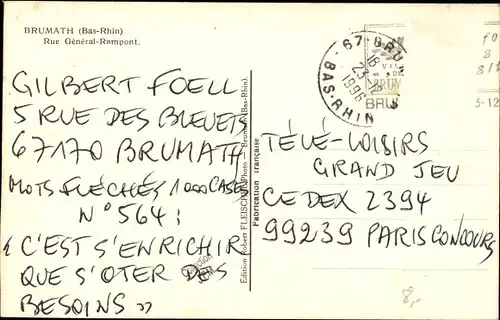 BRUMATH (Bas-Rhin)
Rue Général-Rampont.
GILBERT FOELL
5 RUE DES BLEUETS
67170 BRUMATH
MOTS FLÉCHÉS 1000 CASES
N° 564 :
« C'EST S'ENRICHIR
QUE S'OTER DES
BESOINS »
Edition Robert FLEISCH, Photo — Brumath (Bas-Rhin).
Fabrication française
67 - BRU
18
23-12
1996
BAS-RHIN
BRUM
BRU
3-12
TÉLÉ-LOISIRS
GRAND JEU
CEDEX 2394
99239 PARIS CONCOURS
8,-